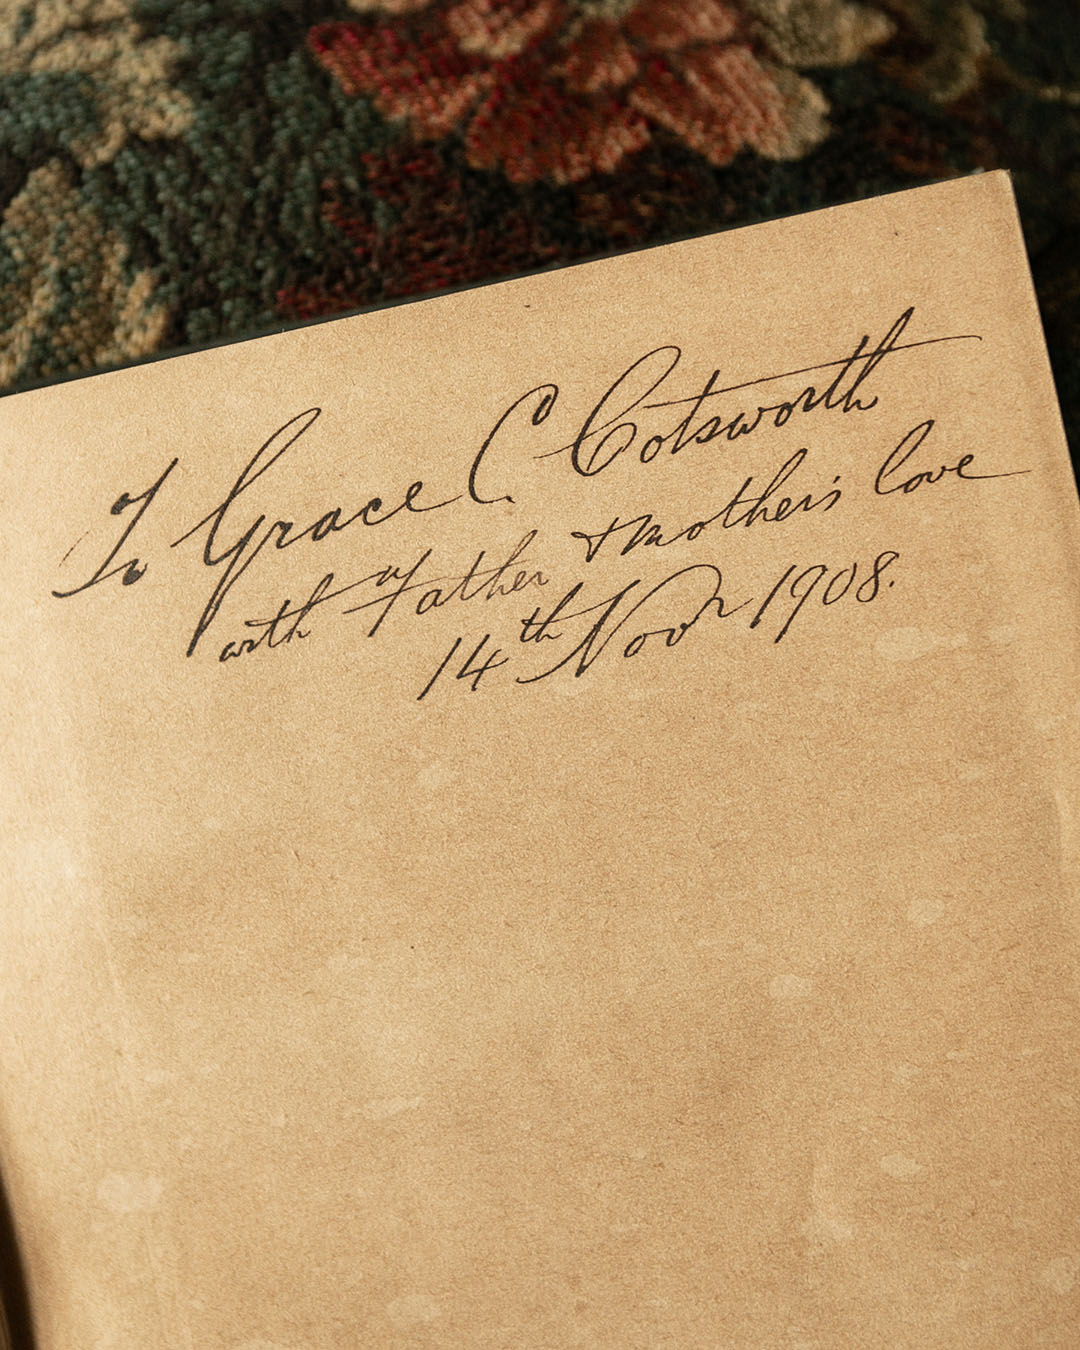 To Grace C. Cotsworth
with Father & Mother's love
14th Novr 1908.